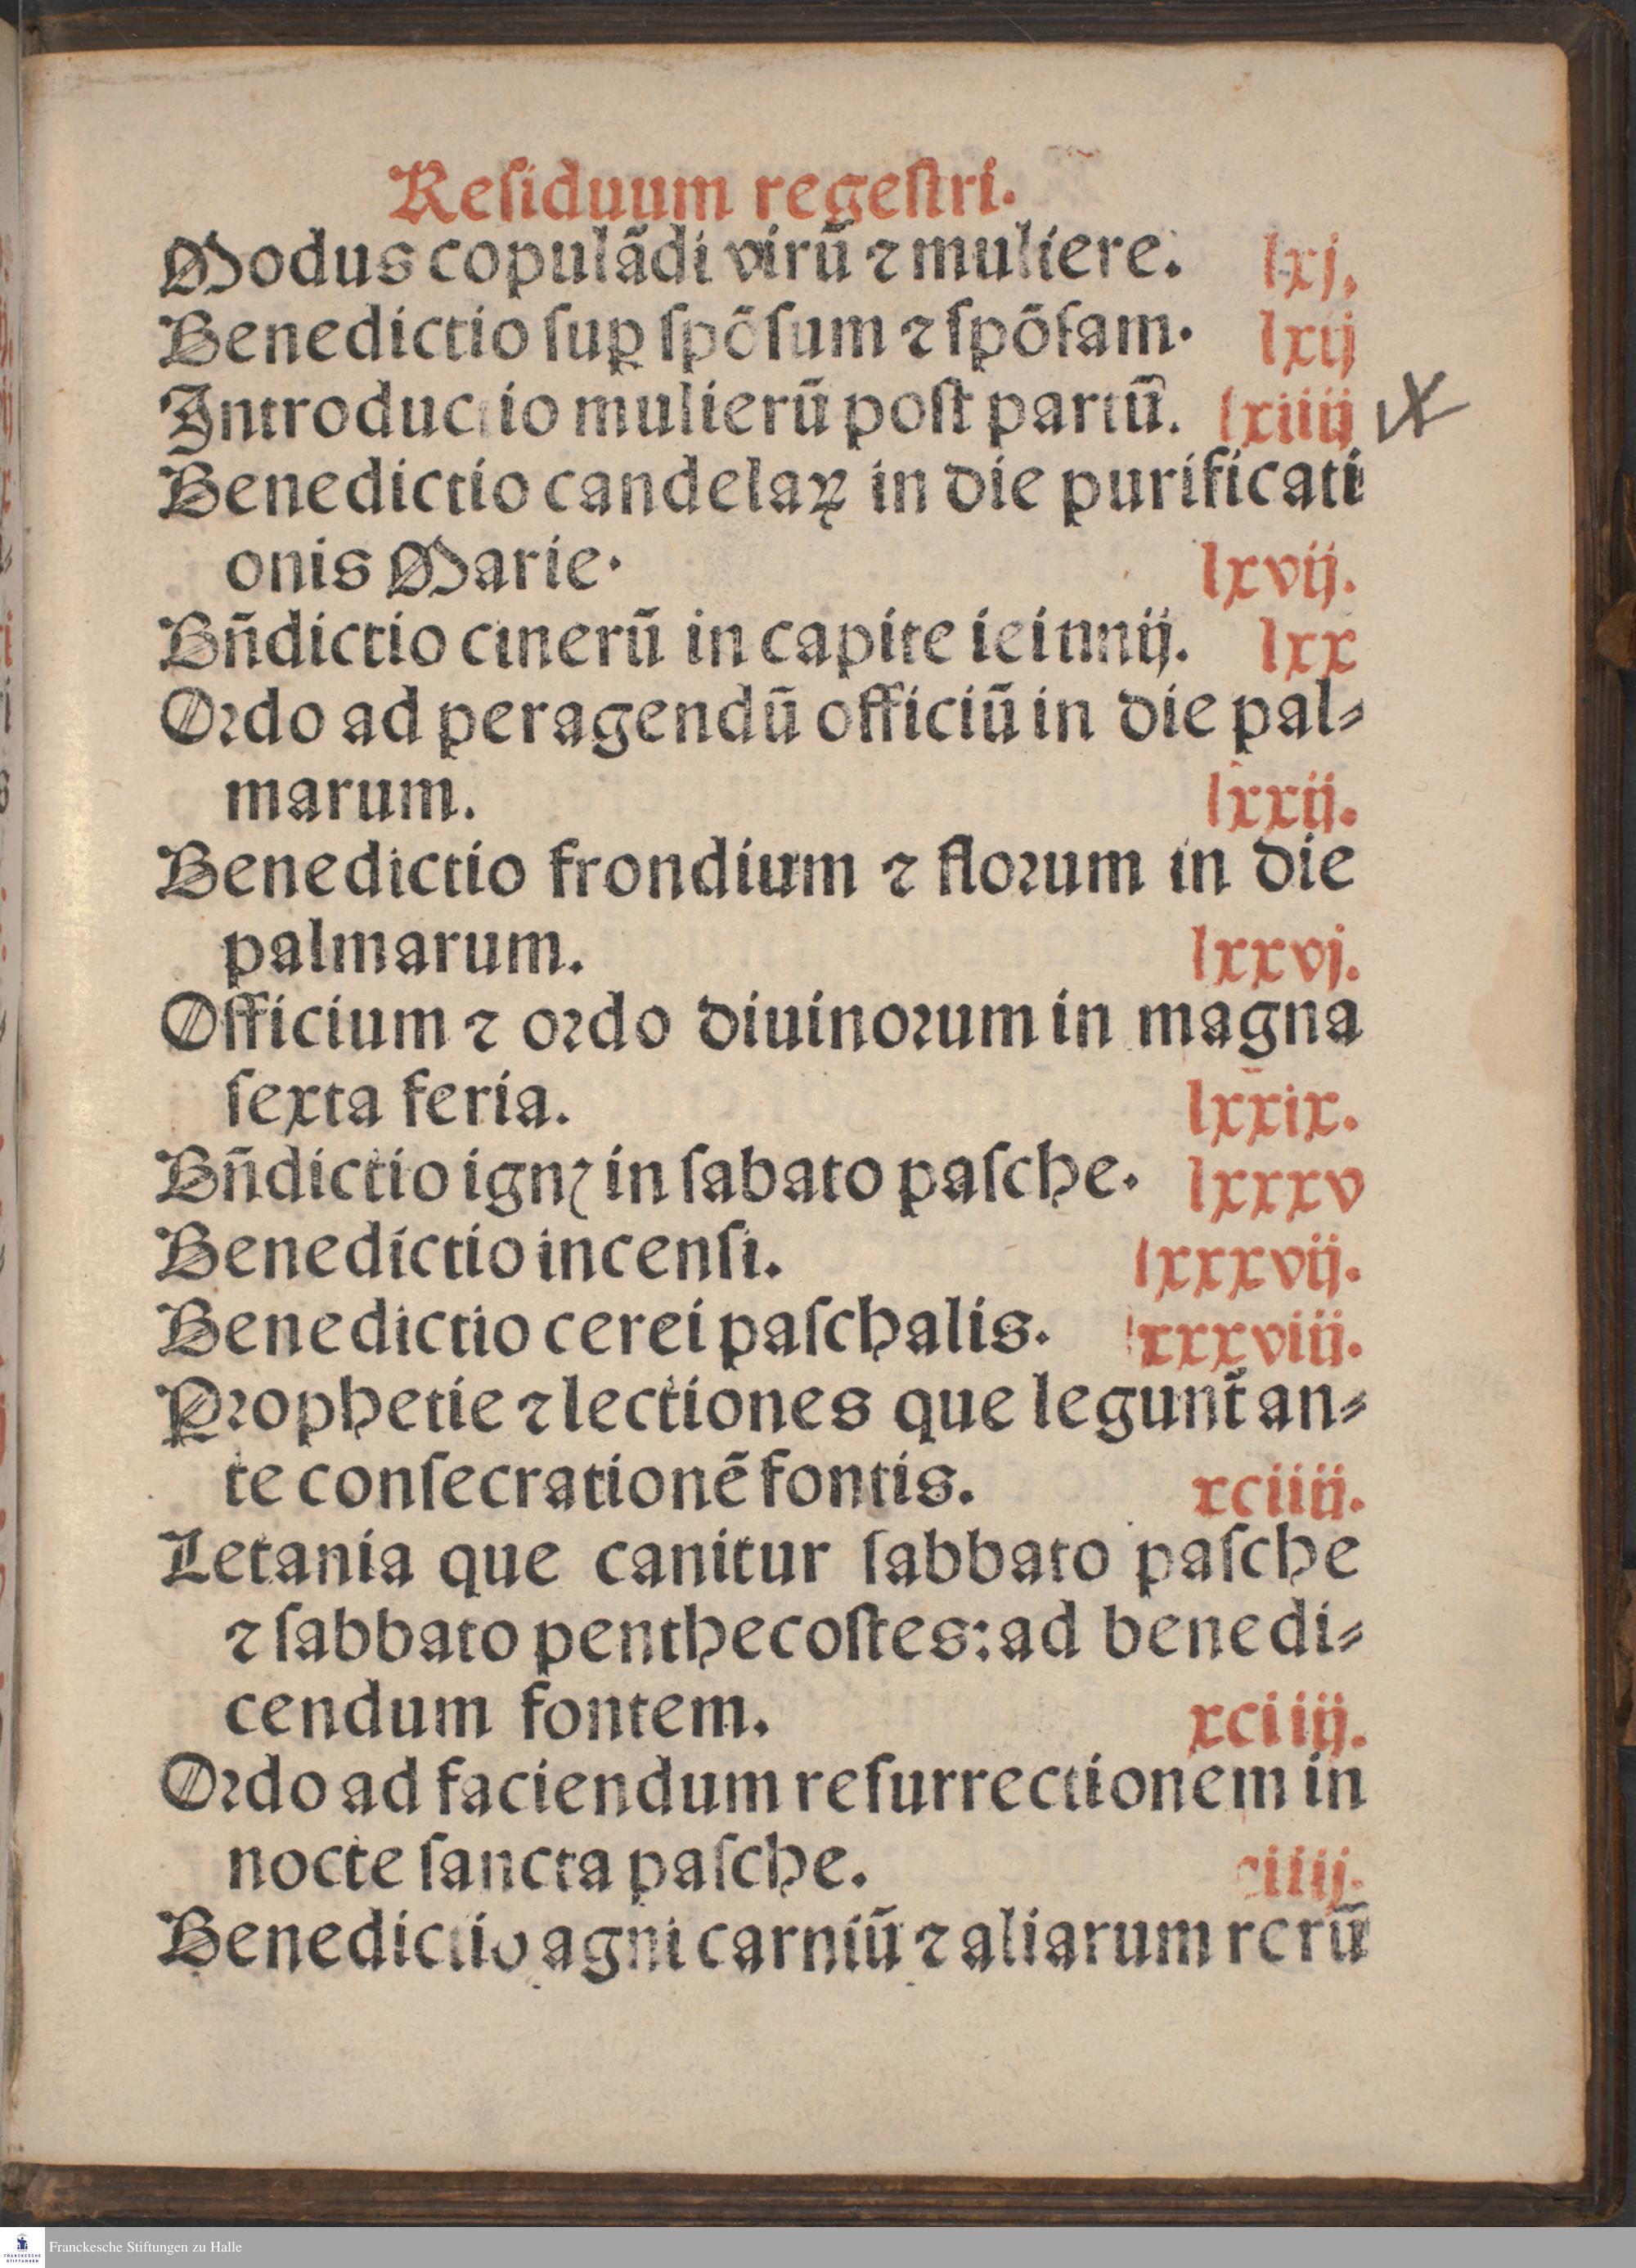 Reſiduum regeſtri.
Modus copulādi virū ⁊ muliere. lxj.
Benedictio ſuꝑ ſpōſum ⁊ ſpōſam. lxij
Introductio mulierū poſt partū. lxiiij
Benedictio candelaꝝ in die purificati
onis Marie. lxvij.
Bn̄dictio cinerū in capite ieiunij. lxx
Oꝛdo ad peragendū officiū in die pal⸗
marum. lxxij.
Benedictio frondium ⁊ floꝛum in die
palmarum. lxxvj.
Officium ⁊ oꝛdo diuinoꝛum in magna
ſexta feria. lxxix.
Bn̄dictio ignꝭ in ſabato paſche. lxxxv
Benedictio incenſi. lxxxvij.
Benedictio cerei paſchalis. lxxxviij.
Pꝛophetie ⁊ lectiones que legunt̄ an⸗
te conſecrationē fontis. xciiij.
Letania que canitur ſabbato paſche
⁊ ſabbato penthecoſtes: ad benedi⸗
cendum fontem. xciiij.
Oꝛdo ad faciendum reſurrectionem in
nocte ſancta paſche. ciiij.
Benedictio agni carniū ⁊ aliarum rerū
Franckesche Stiftungen zu Halle